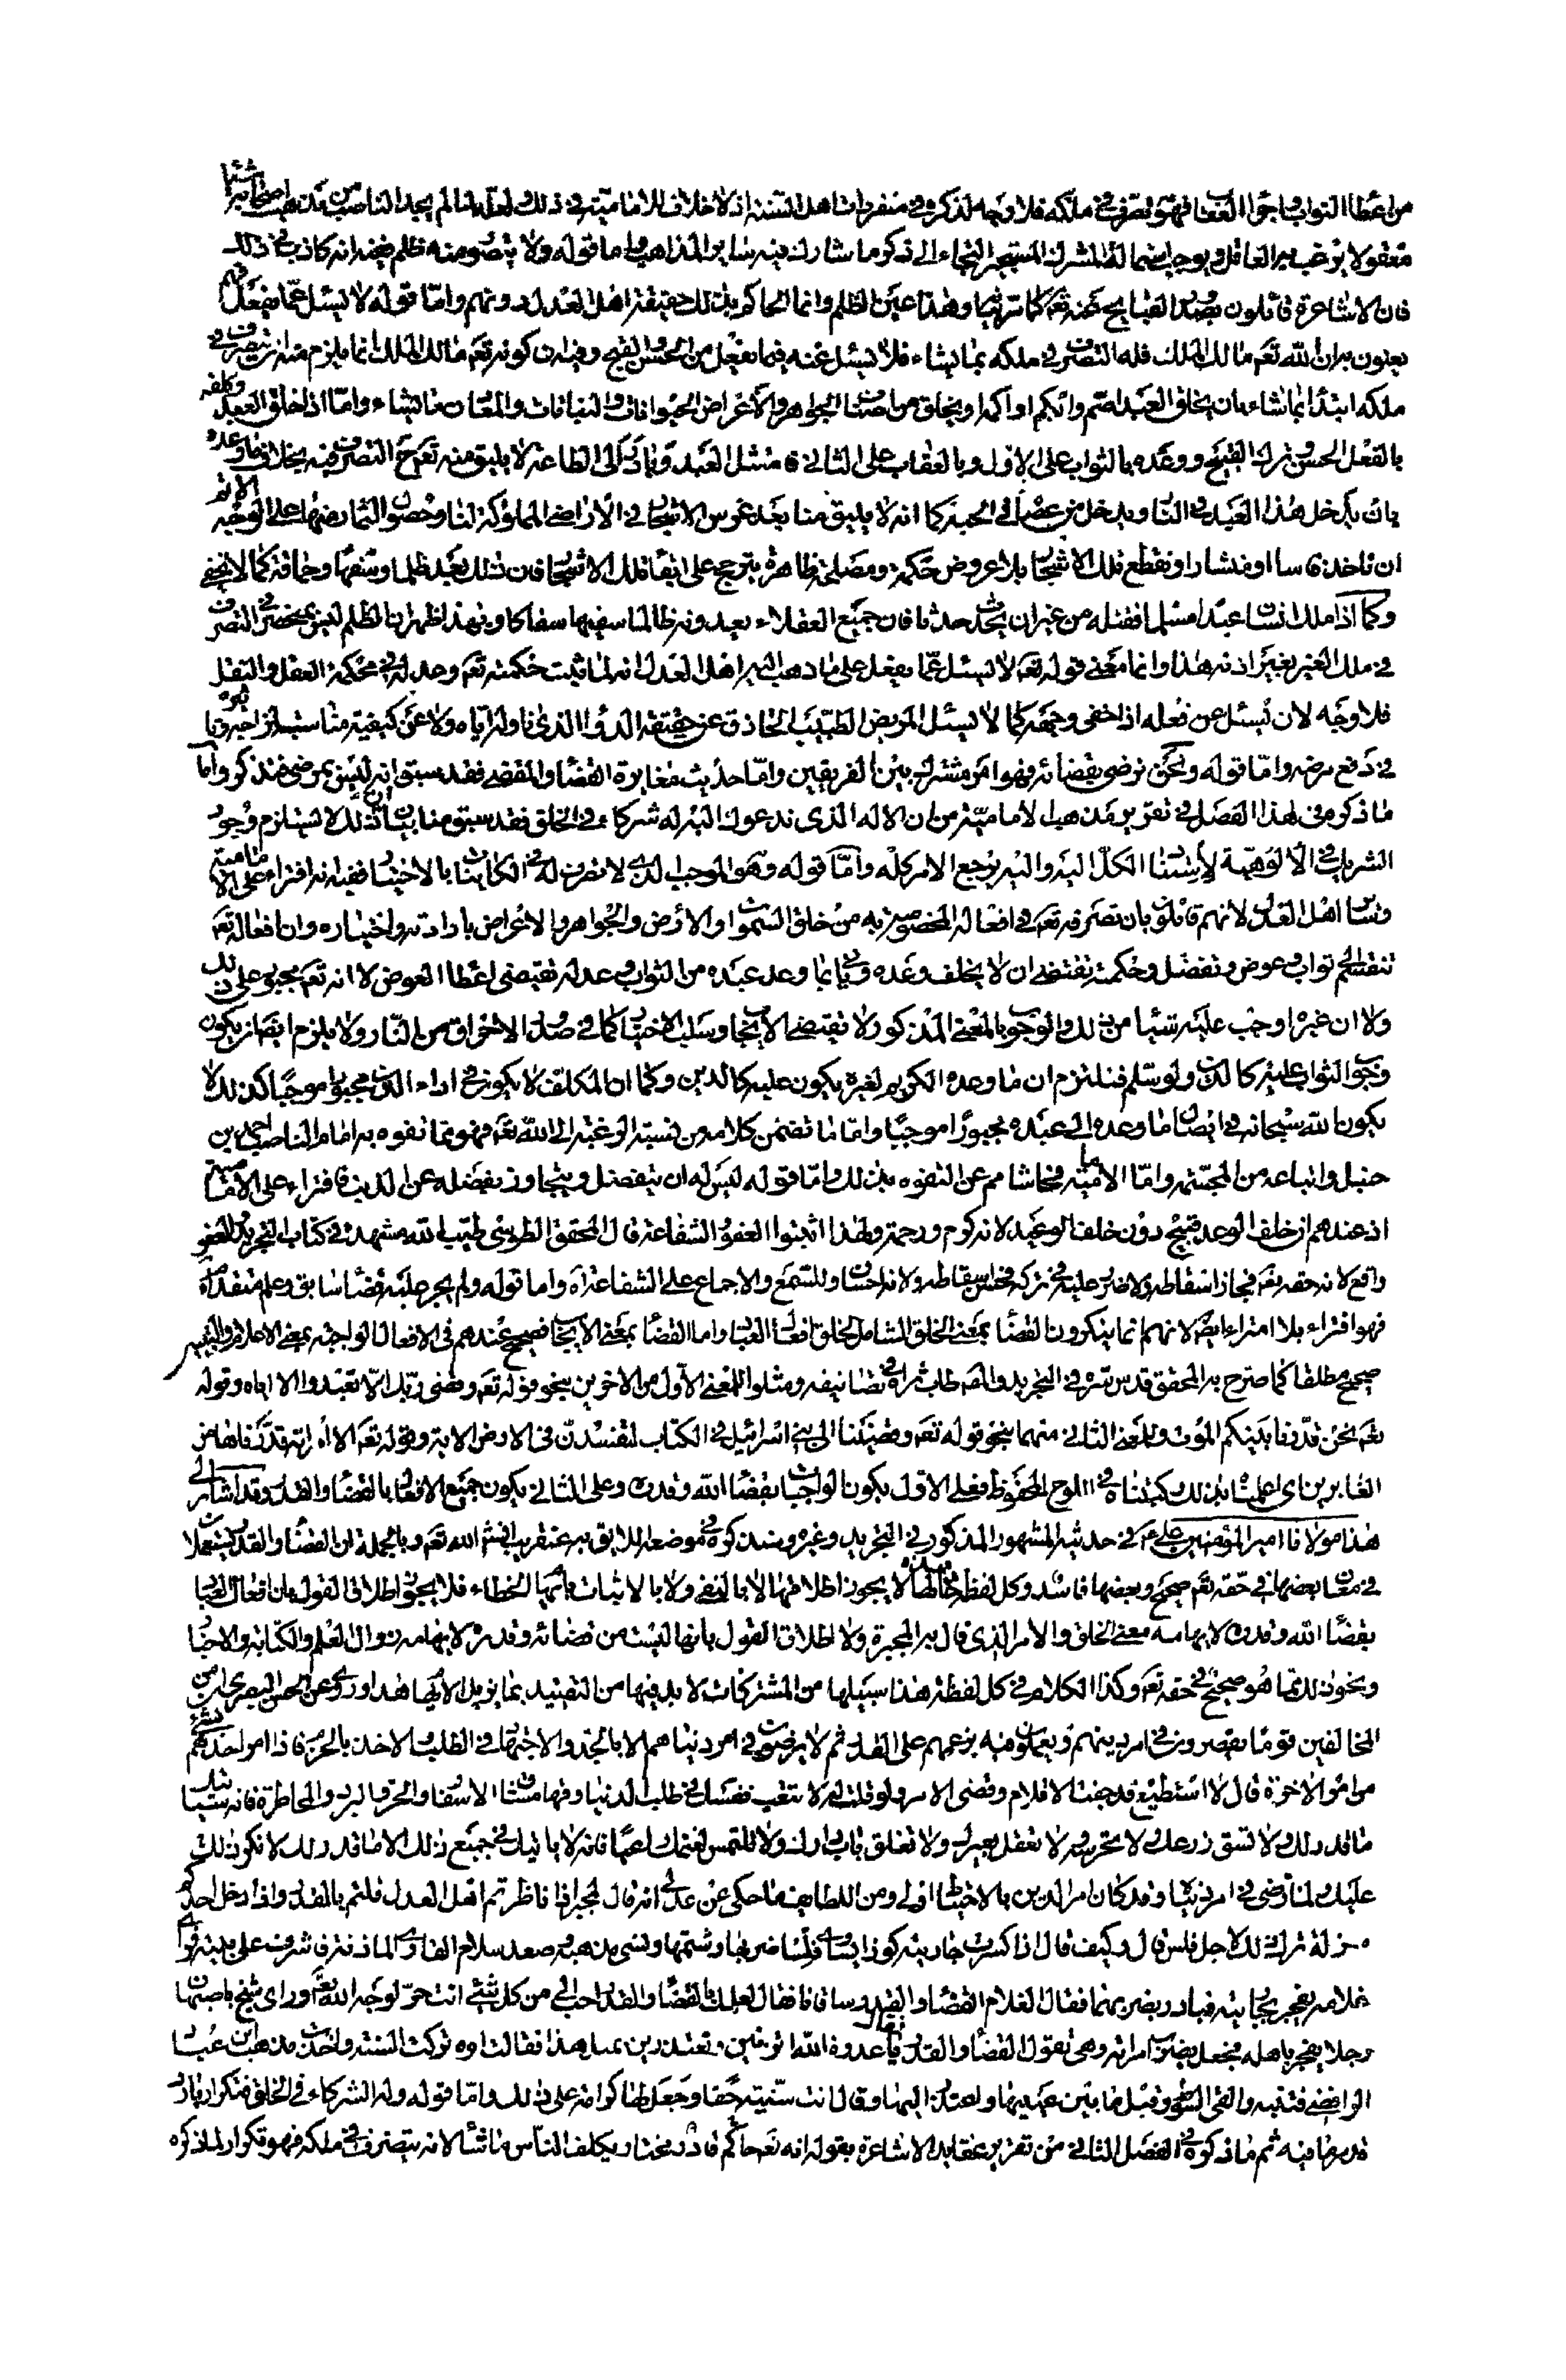 من اعطاء الثواب وجواز العفو فهو تصرف في ملكه فلا وجه لذكره في منفردات اهل السنة اذ لا خلاف للامامية في ذلك لعله لما لم يجد الناصب من مذهب اصحابه شيئا
معقولا يرغب اليه العاقل ويوجب استمالة المشرك المستجير التجاء الى ذكر ما شارك فيه سائر المذاهب واما قوله ولا يتصور منه ظلم ففيه انه كاذب في ذلك
فان الاشاعرة قائلون بصدور القبايح عنه تعم كما مر وهذا عين الظلم وانما الحاكم بذلك حقيقة اهل العدل دونهم واما قوله لا يسئل عما يفعل فهم
يعنون به ان الله تعم مالك الملك فله التصرف في ملكه بما يشاء فلا يسئل عنه فيما يفعل من الحسن والقبح وفيه ان كونه تعم مالك الملك انما يلزم منه ان يتصرف في
ملكه ابتداء بما شاء بان يخلق العبد اصم وابكم او اكمه ويخلق من اصناف الجواهر والاعراض الحيوانات والنباتات والمعادن ما يشاء واما اذا خلق العبد وكلفه
بالفعل الحسن وترك القبيح ووعده بالثواب على الاول وبالعقاب على الثاني فامتثل العبد وبادر الى الطاعة لا يليق منه تعم التصرف فيه بخلاف ما وعده
بان يدخل هذا العبد في النار ويدخل من عصاه في الجنة كما انه لا يليق منا بعد غرس الاشجار في الاراضي المملوكة لنا وحصول الثمار منها على الوجه الاتم
ان ناخذ فاسا او منشارا ونقطع تلك الاشجار بلا عروض حكمة ومصلحة ظاهرة يترجح على ابقاء تلك الاشجار فان ذلك يعد ظلما وسفها وحماقة كما لا يخفى
وكما اذا ملك انسان عبدا مسلما فقتله من غير ان يحدث حدثا فان جميع العقلاء يعدونه ظالما سفيها سفاكا وبهذا ظهر ان الظلم ليس بمنحصر في التصرف
في ملك الغير بغير اذنه هذا وانما معنى قوله تعم لا يسئل عما يفعل على ما ذهب اليه اهل العدل انه لما ثبت حكمته تعم وعدله في محكمة العقل والنقل
فلا وجه لان يسئل عن فعله اذا خفى وجهه كما لا يسئل المريض الطبيب الحاذق عن حقيقة الدواء الذي ناوله اياه ولا عن كيفية مناسبة اجزائه وتاثيره
في دفع مرضه واما قوله ونحن نرضى بقضائه فهو امر مشترك بين الفريقين واما حديث مغايرة القضاء والمقضي فقد سبق انه ليس بمرضى فتذكر واما
ما ذكره في هذا الفصل في تقرير مذهب الامامية من ان الاله الذي ندعوك اليه له شركاء في الخلق فقد سبق منا بيان ان ذلك لا يستلزم وجود
الشريك في الالوهية لاستناد الكل اليه واليه يرجع الامر كله واما قوله وهو الموجب الذي لا تصرف له في الكائنات بالاختيار ففيه انه افتراء على الامامية
وساير اهل العدل لانهم قائلون بان تصرفه تعم في افعاله المخصوصة به من خلق السموات والارض والجواهر والاعراض بارادته واختياره وان افعاله تعم
تنقسم الى ثواب وعوض وتفضل وحكمته تقتضى ان لا يخلف وعده ويأتي بما وعد عبده من الثواب وعدله تقتضى اعطاء العوض لا انه تعم مجبور على ذلك
ولا ان غيره اوجب عليه شيئا من ذلك والوجوب بالمعنى المذكور لا يقتضى الايجاب وسلب الاختيار كما في صدور الاحراق من النار ولا يلزم ايضا ان يكون
وجوب الثواب عليه كالدين ولو سلم فنلتزم ان ما وعده الكريم لغيره يكون عليه كالدين وكما ان المكلف لا يكون في اداء الدين مجبورا موجبا كذلك لا
يكون الله سبحانه في ايصال ما وعده الى عبده مجبورا موجبا واما ما تضمن كلامه من نسبة الرغبة الى الله تعم فهو مما تفوه به امام الناصب احمد بن
حنبل واتباعه من المجسمة واما الامامية فحاشاهم عن التفوه بذلك واما قوله ليس له ان يتفضل ويتجاوز بفضله عن المذنب فافتراء على الامامية
اذ عندهم ان خلف الوعد قبيح دون خلف الوعيد لانه كرم ورحمة ولهذا اثبتوا العفو والشفاعة قال المحقق الطوسي طيب الله مشهده في كتاب التجريد والعفو
واقع لانه حقه تعم فجاز اسقاطه ولا ضرر عليه في تركه فحسن اسقاطه ولانه احسان وللسمع والاجماع على الشفاعة اه واما قوله ولم يجر عليه قضاء سابق وعلم متقدم
فهو افتراء بلا امتراء ايضا لانهم انما ينكرون القضاء بمعنى الخلق الشامل لخلق افعال العباد واما القضاء بمعنى الايجاب فصحيح عندهم في الافعال الواجبة وبمعنى الاعلام والتبيين
صحيح مطلقا كما صرح به المحقق قدس سره في التجريد والعلامة طاب ثراه في تصانيفه ومثلوا للمعنى الاول من الاخرين بنحو قوله تعم وقضى ربك الا تعبدوا الا اياه وقوله
تعم نحن قدرنا بينكم الموت وللمعنى الثاني منهما بنحو قوله تعم وقضينا الى بني اسرائيل في الكتاب لتفسدن في الارض الاية وقوله تعم الا امراته قدرناها من
الغابرين اي اعلمناه بذلك وكتبناه في اللوح المحفوظ فعلى الاول يكون الواجبات بقضاء الله وقدره وعلى الثاني يكون جميع الافعال بالقضاء والقدر وقد اشار الى
هذا مولانا امير المؤمنين علي ع في حديثه المشهور المذكور في التجريد وغيره وسنذكره في موضعه اللايق به عن قريب انشاء الله تعم وبالجملة ان القضاء والقدر يستعملا
في معان بعضها في حقه تعم صحيح وبعضها فاسد وكل لفظة حالها هذه لا يجوز اطلاقها لا بالنفي ولا بالاثبات لايهامها الخطاء فلا يجوز اطلاق القول بان افعال العباد
بقضاء الله وقدره لايهامه معنى الخلق والامر الذي قال به المجبرة ولا اطلاق القول بانها ليست من قضائه وقدره لايهامه زوال العلم والكتابة والاخبار
ونحو ذلك مما هو صحيح في حقه تعم وكذا الكلام في كل لفظة هذا سبيلها من المشتركات لا بد فيها من التقييد بما يزيل الايهام هذا وروى عن الحسن البصري ان من
المخالفين قوما يقصرون في امر دينهم ويعملون فيه بزعمهم على القدر ثم لا يرضون في امر دنياهم الا بالجد والاجتهاد في الطلب والاخذ بالحزم فاذا امر احدهم بشيء
من امور الاخرة قال لا استطيع قد جفت الاقلام وقضى الامر ولو قلت له لا تتعب نفسك في طلب الدنيا وقها مشاق الاسفار والحر والبرد والمخاطرة فانه سيأتيك
ما قدر لك ولا تسق زرعك ولا تحرسه ولا تعقل بعيرك ولا تغلق باب دارك ولا تلتمس لغنمك راعيا فانه لا يأتيك في جميع ذلك الا ما قدر لك لانكر ذلك
عليك ولما رضى في امر دنياه وقد كان امر الدين بالاحتياط اولى ومن اللطايف ما حكى عن عدلي انه قال لمجبر اذا ناظرتم اهل العدل قلتم بالقدر واذا دخل احدكم
منزله ترك ذلك لاجل فلس قال وكيف قال اذا كسرت جاريته كوزا يساوي فلسا ضربها وشتمها ونسى مذهبه وصعد سلام القاري المأذنة فاشرف على بيته فراى
غلامه يفجر بجاريته فبادر بضربهما فقال الغلام القضاء والقدر ساقانا فقال لعلمك بالقضاء والقدر احب الي من كل شيء انت حر لوجه الله تعم وراى شيخ باصبهان
رجلا يفجر باهله فجعل يضرب امراته وهي تقول القضاء والقدر فقال يا عدوة الله اتزنين وتعتذرين بمثل هذا فقالت اوه تركت السنة واخذت مذهب ابن عباد
الرافضي فتنبه والقى السوط وقبل ما بين عينيها واعتذر اليها وقال انت سنية حقا وجعل لها كرامة على ذلك واما قوله وله الشركاء في الخلق فتكرار بارد
قد مر ما فيه ثم ما ذكره في الفصل الثاني من تقرير عقايد الاشاعرة بقوله انه تعم حاكم قادر مختار يكلف الناس ما شاء لانه يتصرف في ملكه فهو تكرار لما ذكره